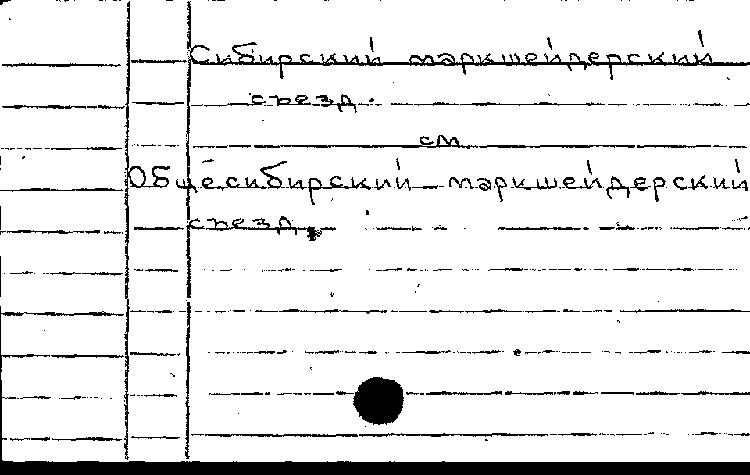 Сибирский маркшейдерский
съезд.
см
Общесибирский маркшейдерский
съезд.